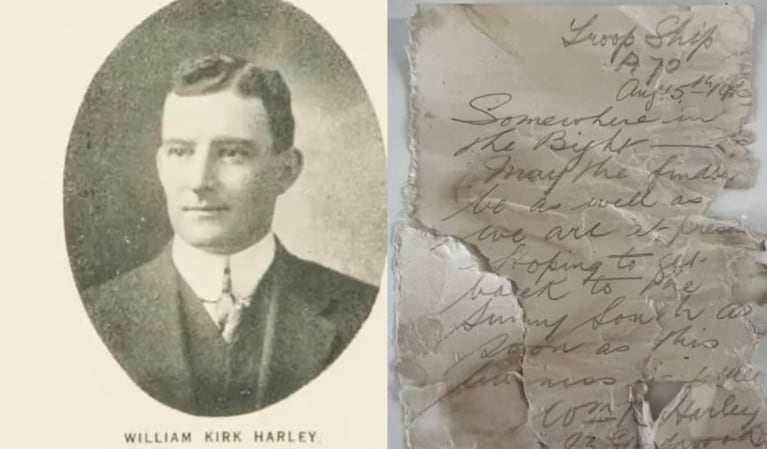 WILLIAM KIRK HARLEY.
Troop Ship
A70
Aug 15th 191
Somewhere in
the Bight
May the finder
be as well as
we are at present
Hoping to get
back to the
Sunny South as
soon as this
is
Wm K Harley